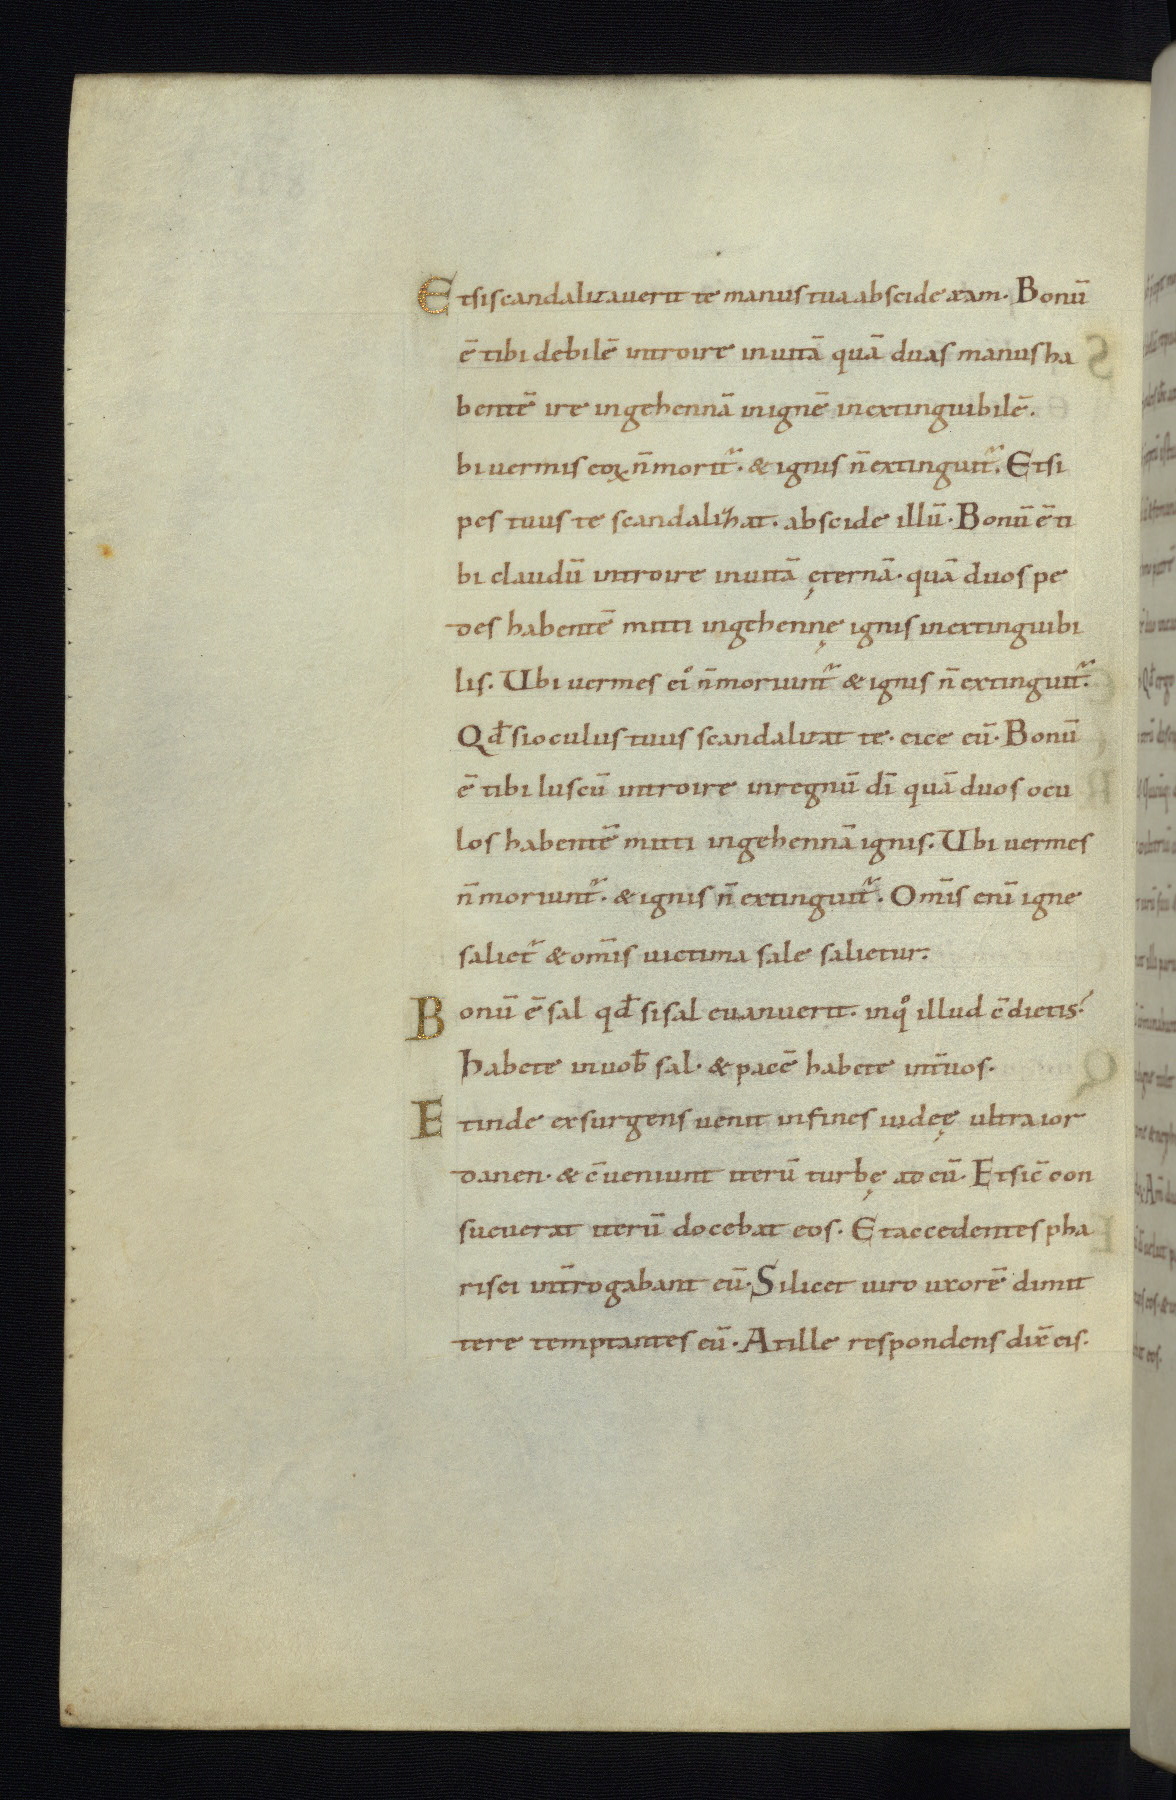 Et si scandalizauerit te manus tua abscide eam. Bonū
ē tibi debilē introire in uitā quā duas manus ha
bentē ire in gehennā in ignē inextinguibilē.
bi uermis eoꝝ n̄ morit᷑. & ignis n̄ extinguit᷑. Et si
pes tuus te scandalizat. abscide illū. Bonū ē ti
bi claudū introire in uitā ęternā. quā duos pe
des habentē mitti in gehennę ignis inextinguibi
lis. Ubi uermes eiꝰ n̄ moriunt᷑ & ignis n̄ extinguit᷑.
Qd̄ si oculus tuus scandalizat te. eice eū. Bonū
ē tibi luscū introire in regnū dī quā duos ocu
los habentē mitti in gehennā ignis. Ubi uermes
n̄ moriunt᷑. & ignis n̄ extinguit᷑. Om̄is enī igne
saliet᷑ & om̄is uictima sale salietur.
Bonū ē sal qd̄ si sal euanuerit. in qͦ illud c̄dietis?
Habete in uob̄ sal. & pacē habete int̄ uos.
Et inde exsurgens uenit in fines iudeę ultra ior
danen. & c̄ueniunt iterū turbę ad eū. Et sic̄ con
sueuerat iterū docebat eos. Et accedentes pha
risei int̄rogabant eū. Si licet uiro uxorē dimit
tere temptantes eū. At ille respondens dix̄ eis.